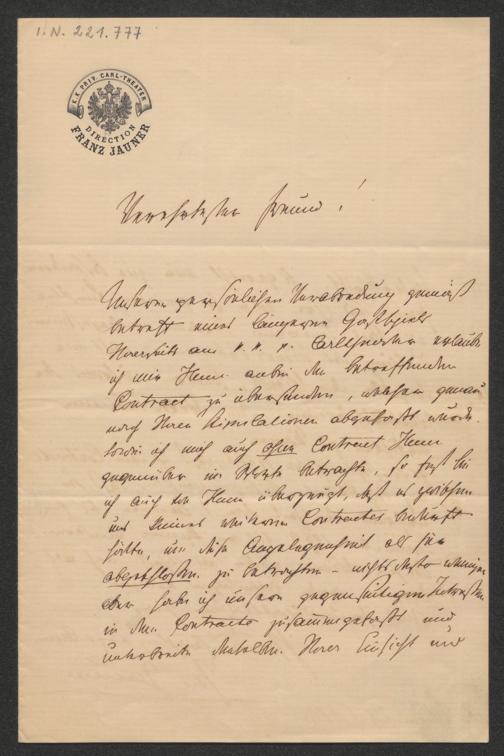 I.N. 221.777
K.K. PRIV. CARL-THEATER
DIRECTION
FRANZ JAUNER
Verehrtester Freund!
Unserer persönlichen Verabredung gemäß
betreff eines längeren Gastspiels
Ihrerseits am k. k. p. Carltheater erlaube
ich mir Ihnen anbei den betreffenden
Contract zu übersenden, welcher genau
nach Ihren Stipulationen abgefaßt wurde.
Wenn ich mich auch ohne Contract Ihnen
gegenüber im Worte betrachte, so fest bin
ich auch von Ihnen überzeugt, daß es zwischen
uns keines weiteren Contractes bedurft
hätte, um diese Angelegenheit als für
abgeschlossen zu betrachten – nichts desto weniger
aber habe ich unsere gegenseitigen Interessen
in dem Contracte zusammengefaßt und
unterbreite denselben Ihrer Einsicht und